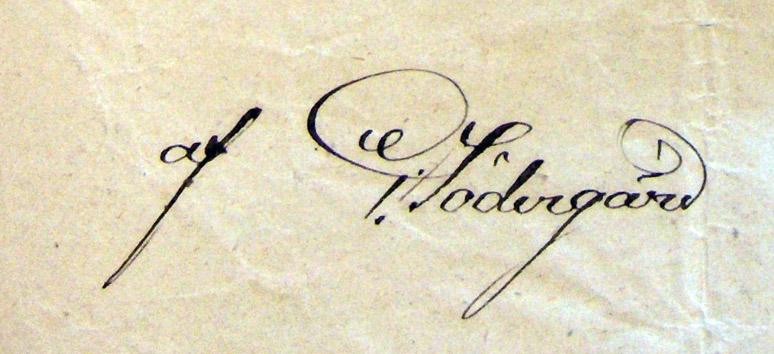 af P. Södergård